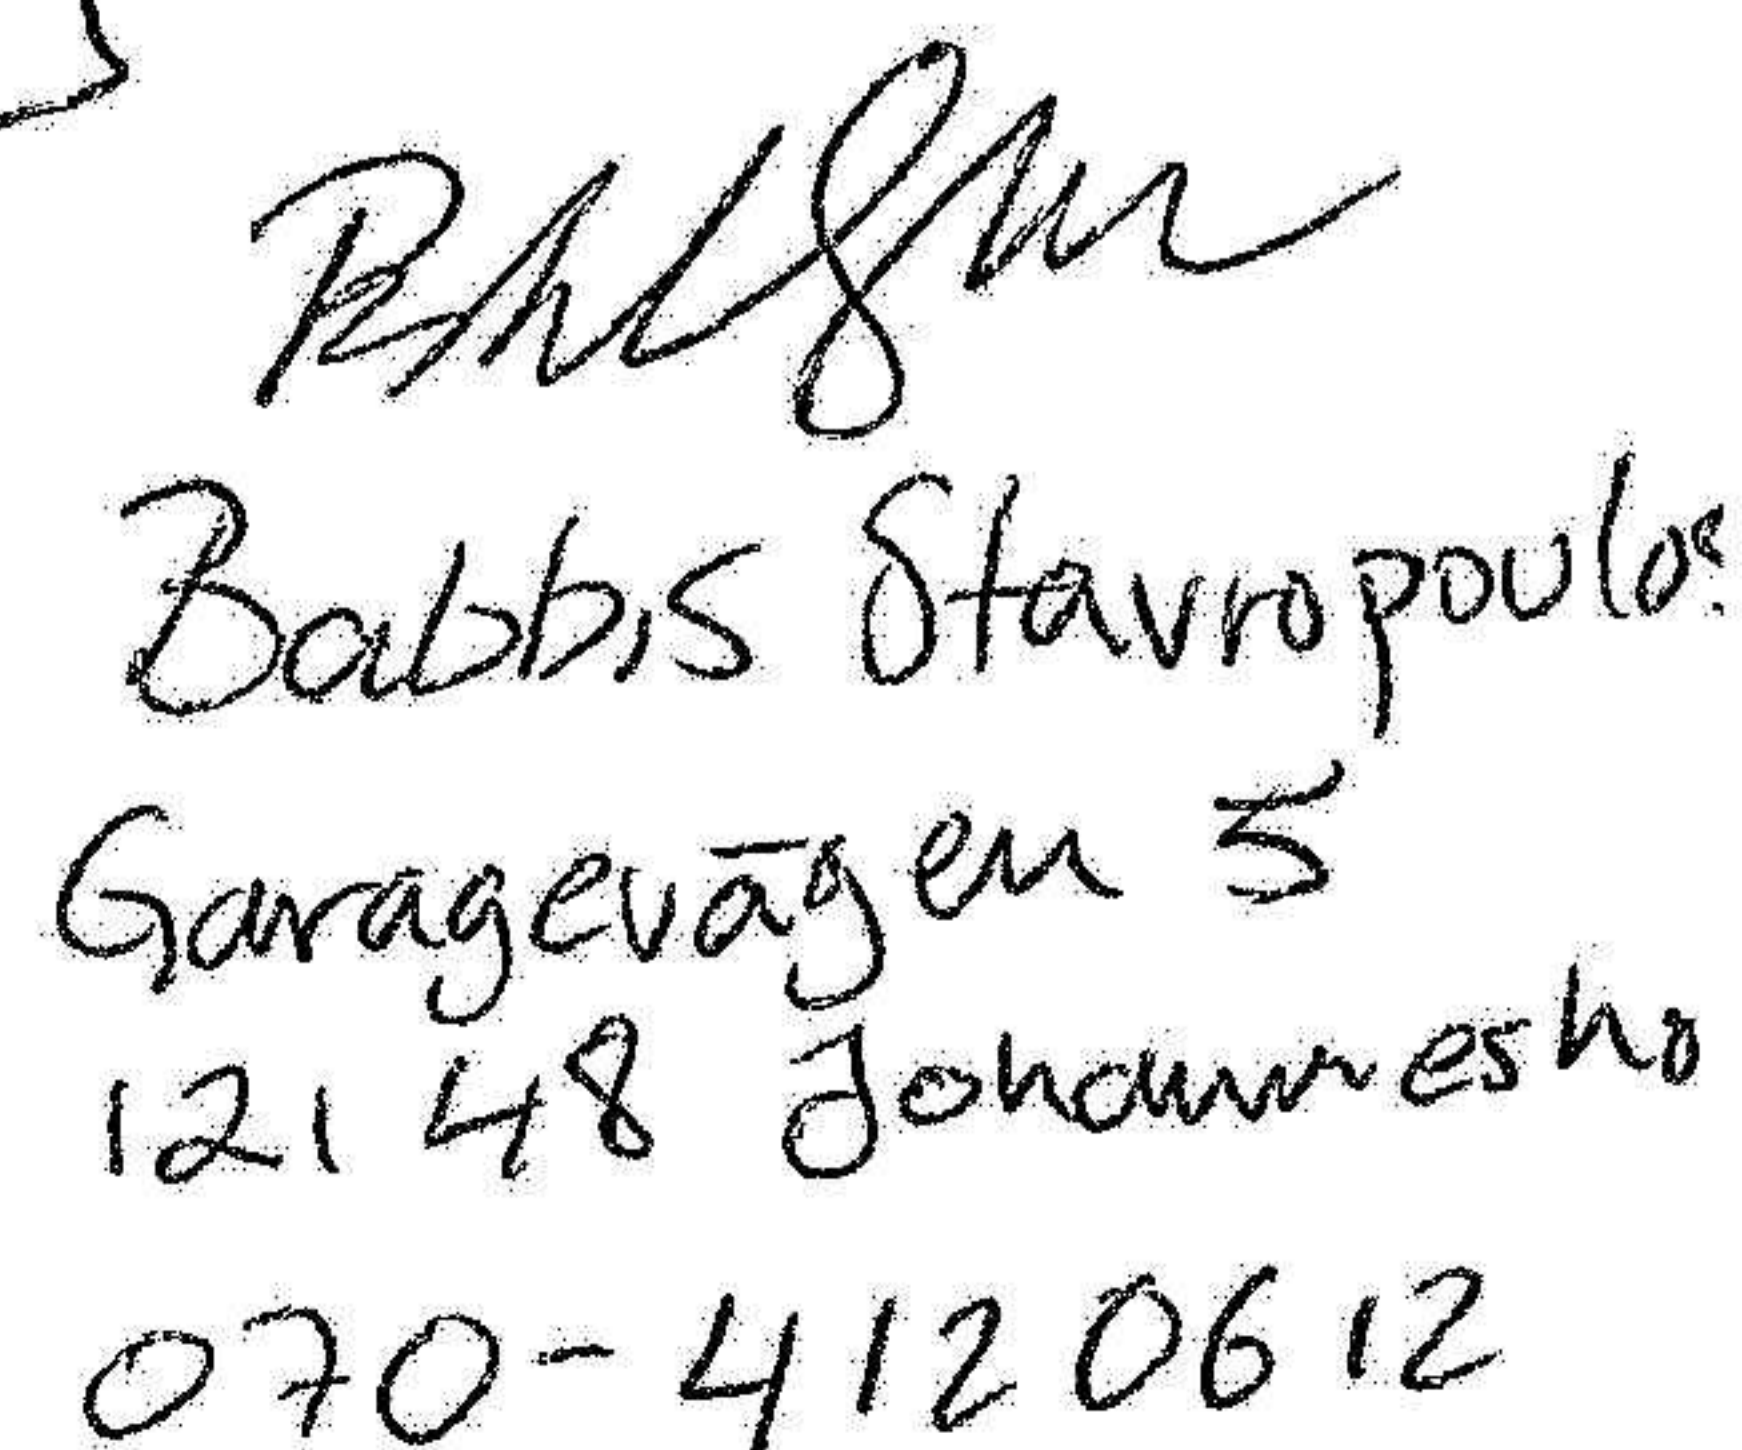 Babbis Stavropoulos
Garagevägen 5
121 48 Johannesho
070-4120612